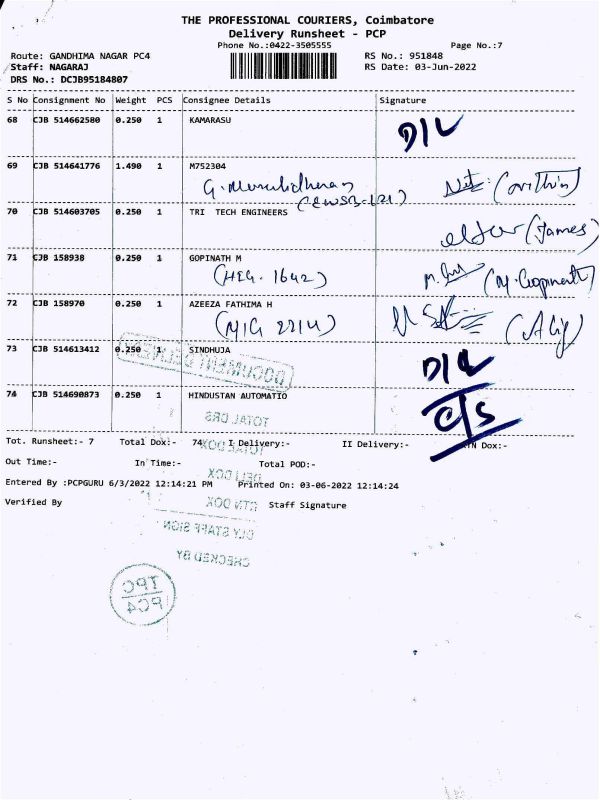 THE PROFESSIONAL COURIERS, Coimbatore
Delivery Runsheet - PCP
Phone No.:0422-3505555 Page No.:7
Route: GANDHIMA NAGAR PC4 RS No.: 951848
Staff: NAGARAJ RS Date: 03-Jun-2022
DRS No.: DCJB95184807
S No Consignment No Weight PCS Consignee Details Signature
68 CJB 514662580 0.250 1 KAMARASU D/L
69 CJB 514641776 1.490 1 M752304
G. Muralidharan
70 CJB 514603705 0.250 1 TRI TECH ENGINEERS (James)
71 CJB 158938 0.250 1 GOPINATH M
(HIG. 1642) (M. Gopinath)
72 CJB 158970 0.250 1 AZEEZA FATHIMA H
(MIG 2214)
73 CJB 514613412 0.250 1 SINDHUJA D/L
74 CJB 514690873 0.250 1 HINDUSTAN AUTOMATIO C/S
Tot. Runsheet:- 7 Total Dox:- 74 I Delivery:- II Delivery:- Dox:-
Out Time:- In Time:- Total POD:-
Entered By :PCPGURU 6/3/2022 12:14:21 PM Printed On: 03-06-2022 12:14:24
Verified By Staff Signature
DOCUMENT DELIVERY
TOTAL DRS
TOTAL DOX
DELI DOX
RTN DOX
DLY STAFF SIGN
CHECKED BY
TPC
PC4